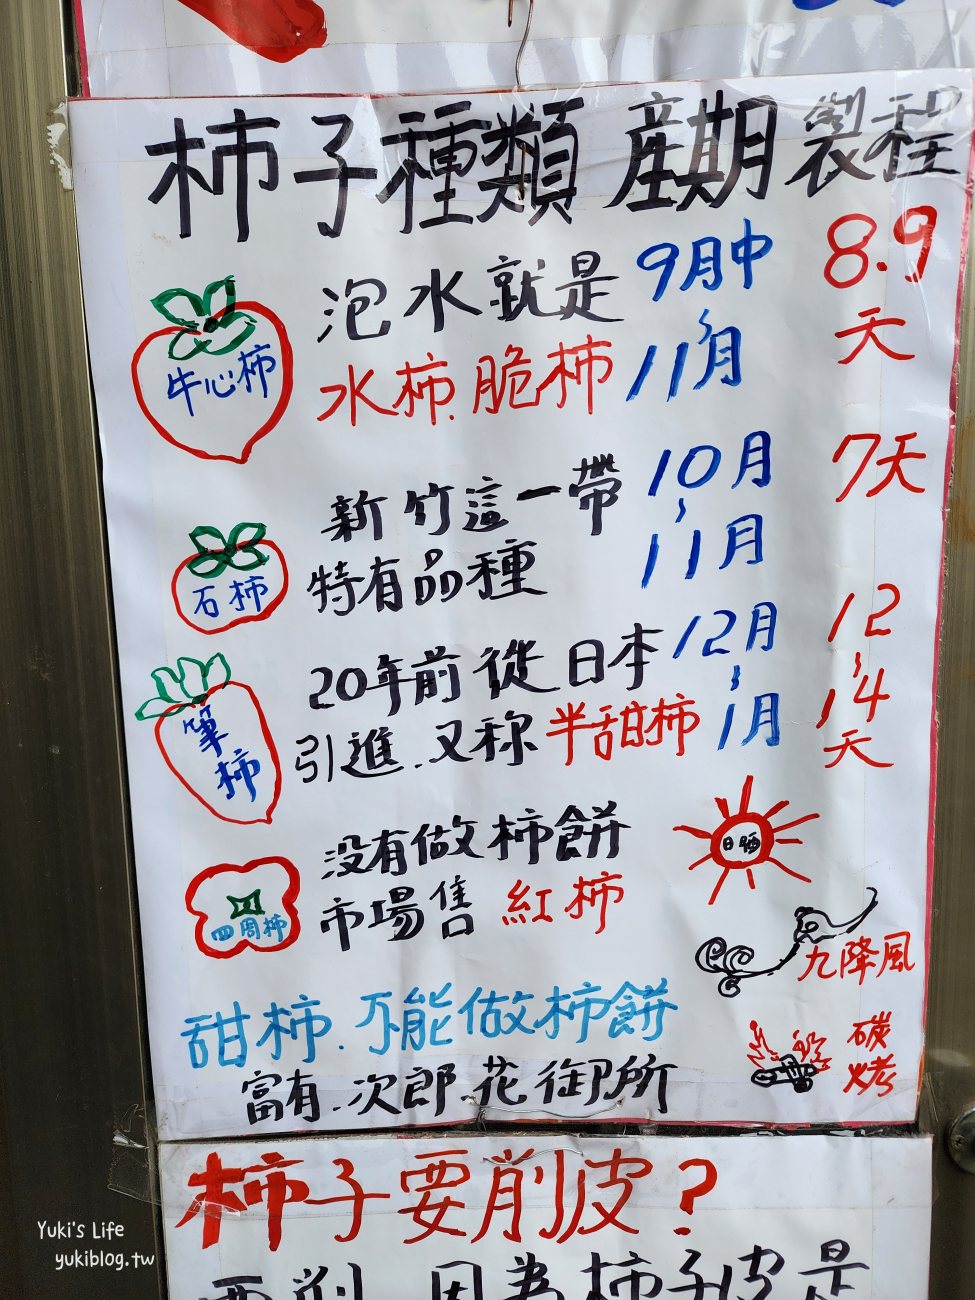 柿子種類 產期 製程
牛心柿
泡水就是
水柿.脆柿
9月中
~
11月
8.9
天
石柿
新竹這一帶
特有品種
10月
~
11月
7天
筆柿
20年前從日本
引進.又称半甜柿
12月
~
1月
12
~
14
天
四周柿
没有做柿餅
市場售 紅柿
日曬
九降風
碳
烤
甜柿.不能做柿餅
富有.次郎.花御所
柿子要削皮?
要削 因為柿子皮是
Yuki's Life
yukiblog.tw